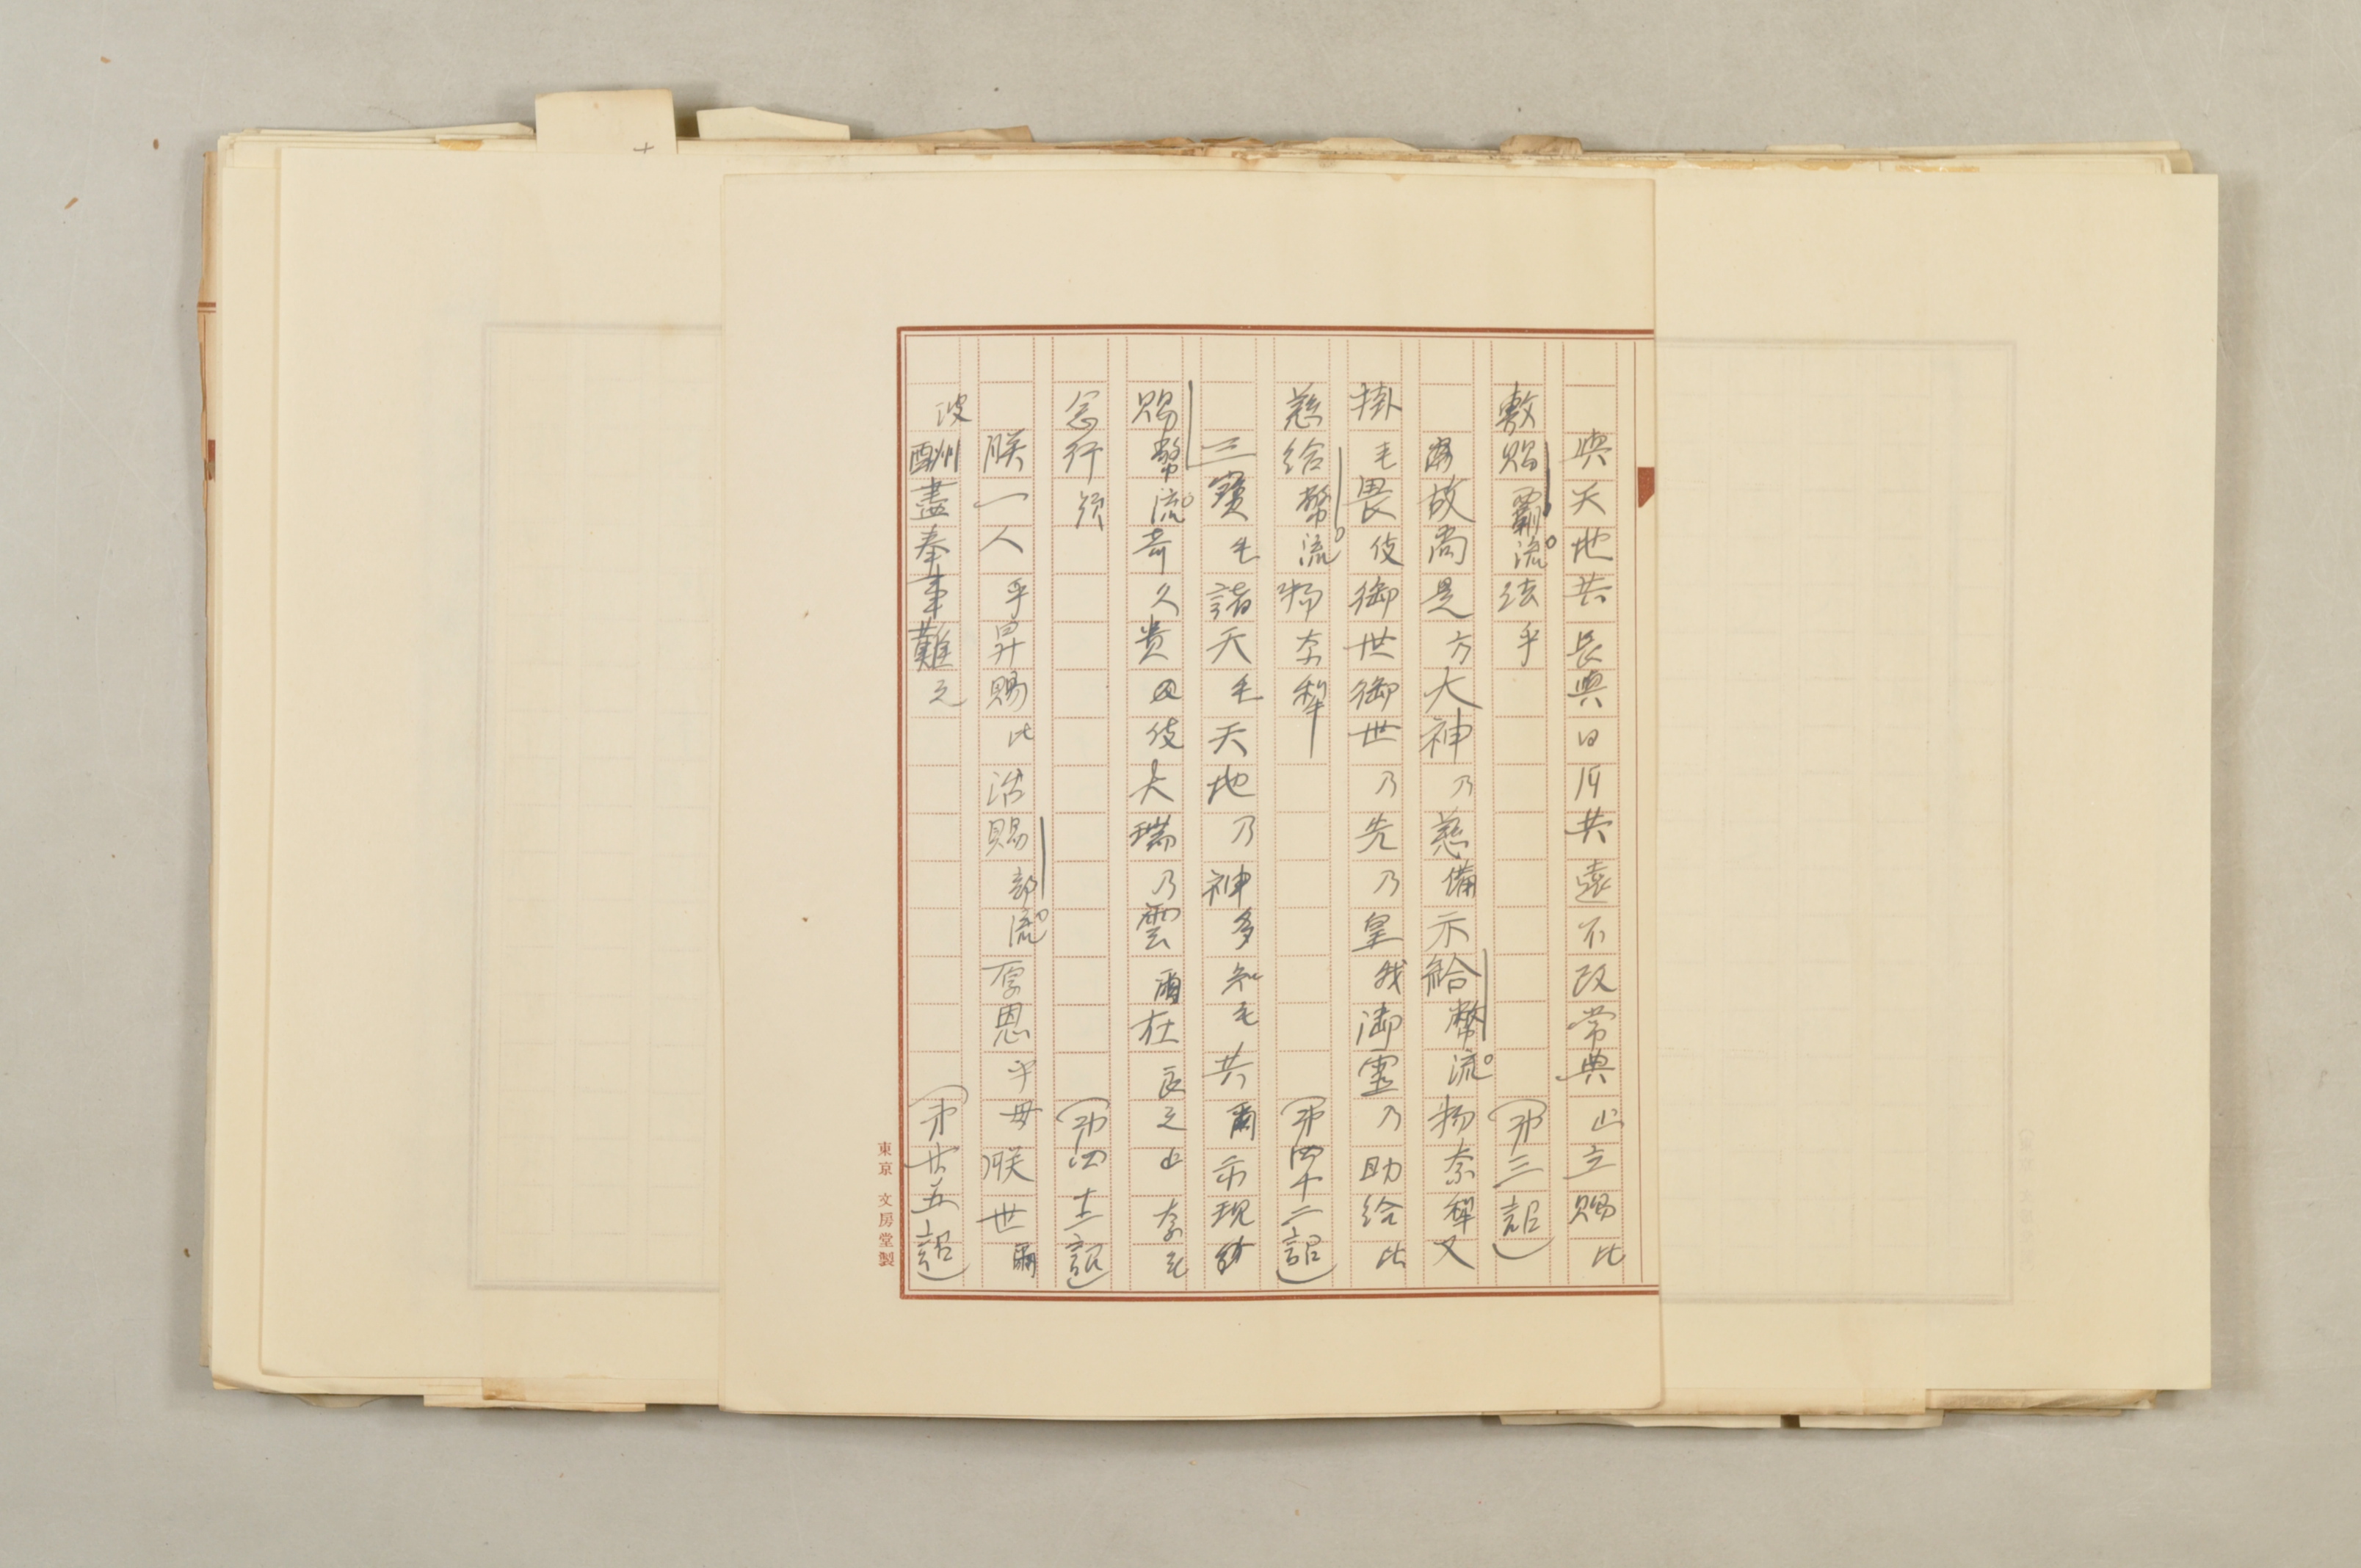 與天地共長與日月共遠不改常典止立賜比
敷賜覇流法乎（第三詔）
爾故尚是方大神乃慈備示給幣流物奈犁又
掛毛畏伎御世御世乃先乃皇我御霊乃助給比
慈給幣流物奈犁（第四十二詔）
三寶毛諸天毛天地乃神多知毛共爾示現
賜幣流奇久貴伎大瑞乃雲爾在良之止奈毛
念行須（第四十二詔）
朕一人乎昇賜比治賜部流厚恩乎毋朕世爾
波酬盡奉事難之（第廿五詔）
東京 文房堂製